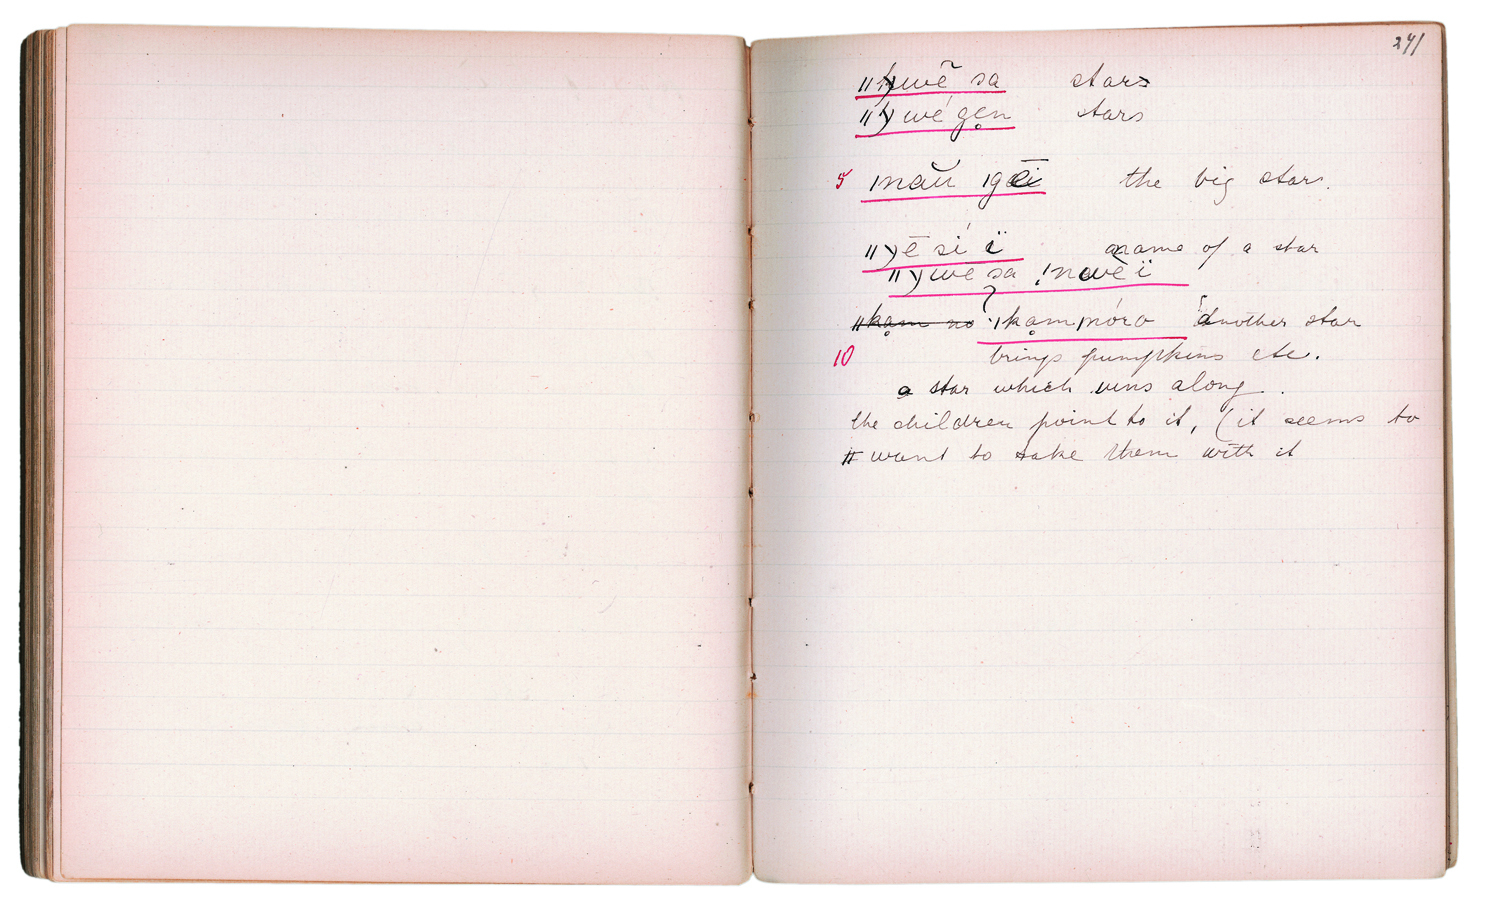 241
ǁχuwẽ sa stars
ǁχwé gẹn stars
5 ǀnaŭ ǀgēi the big star.
ǁχē sí ï name of a star
ǁχwe sa ǃnawè ï
ǁkạm no ? ǀkạmǀnóro another star
10 brings pumpkins etc.
a star which runs along.
the children point to it, (it seems to
want to take them with it